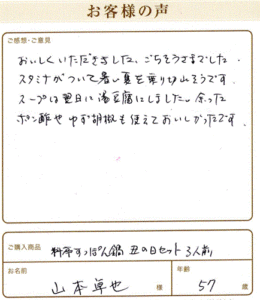 お客様の声
ご感想・ご意見
おいしくいただきました、ごちそうさまでした.
スタミナがついて暑い夏を乗り切れそうです.
スープは翌日に湯豆腐にしました。余った
ポン酢やゆず胡椒も使えておいしかったです.
ご購入商品
料亭すっぽん鍋 丑の日セット 3人前
お名前
山本卓也 様
年齢
57 歳